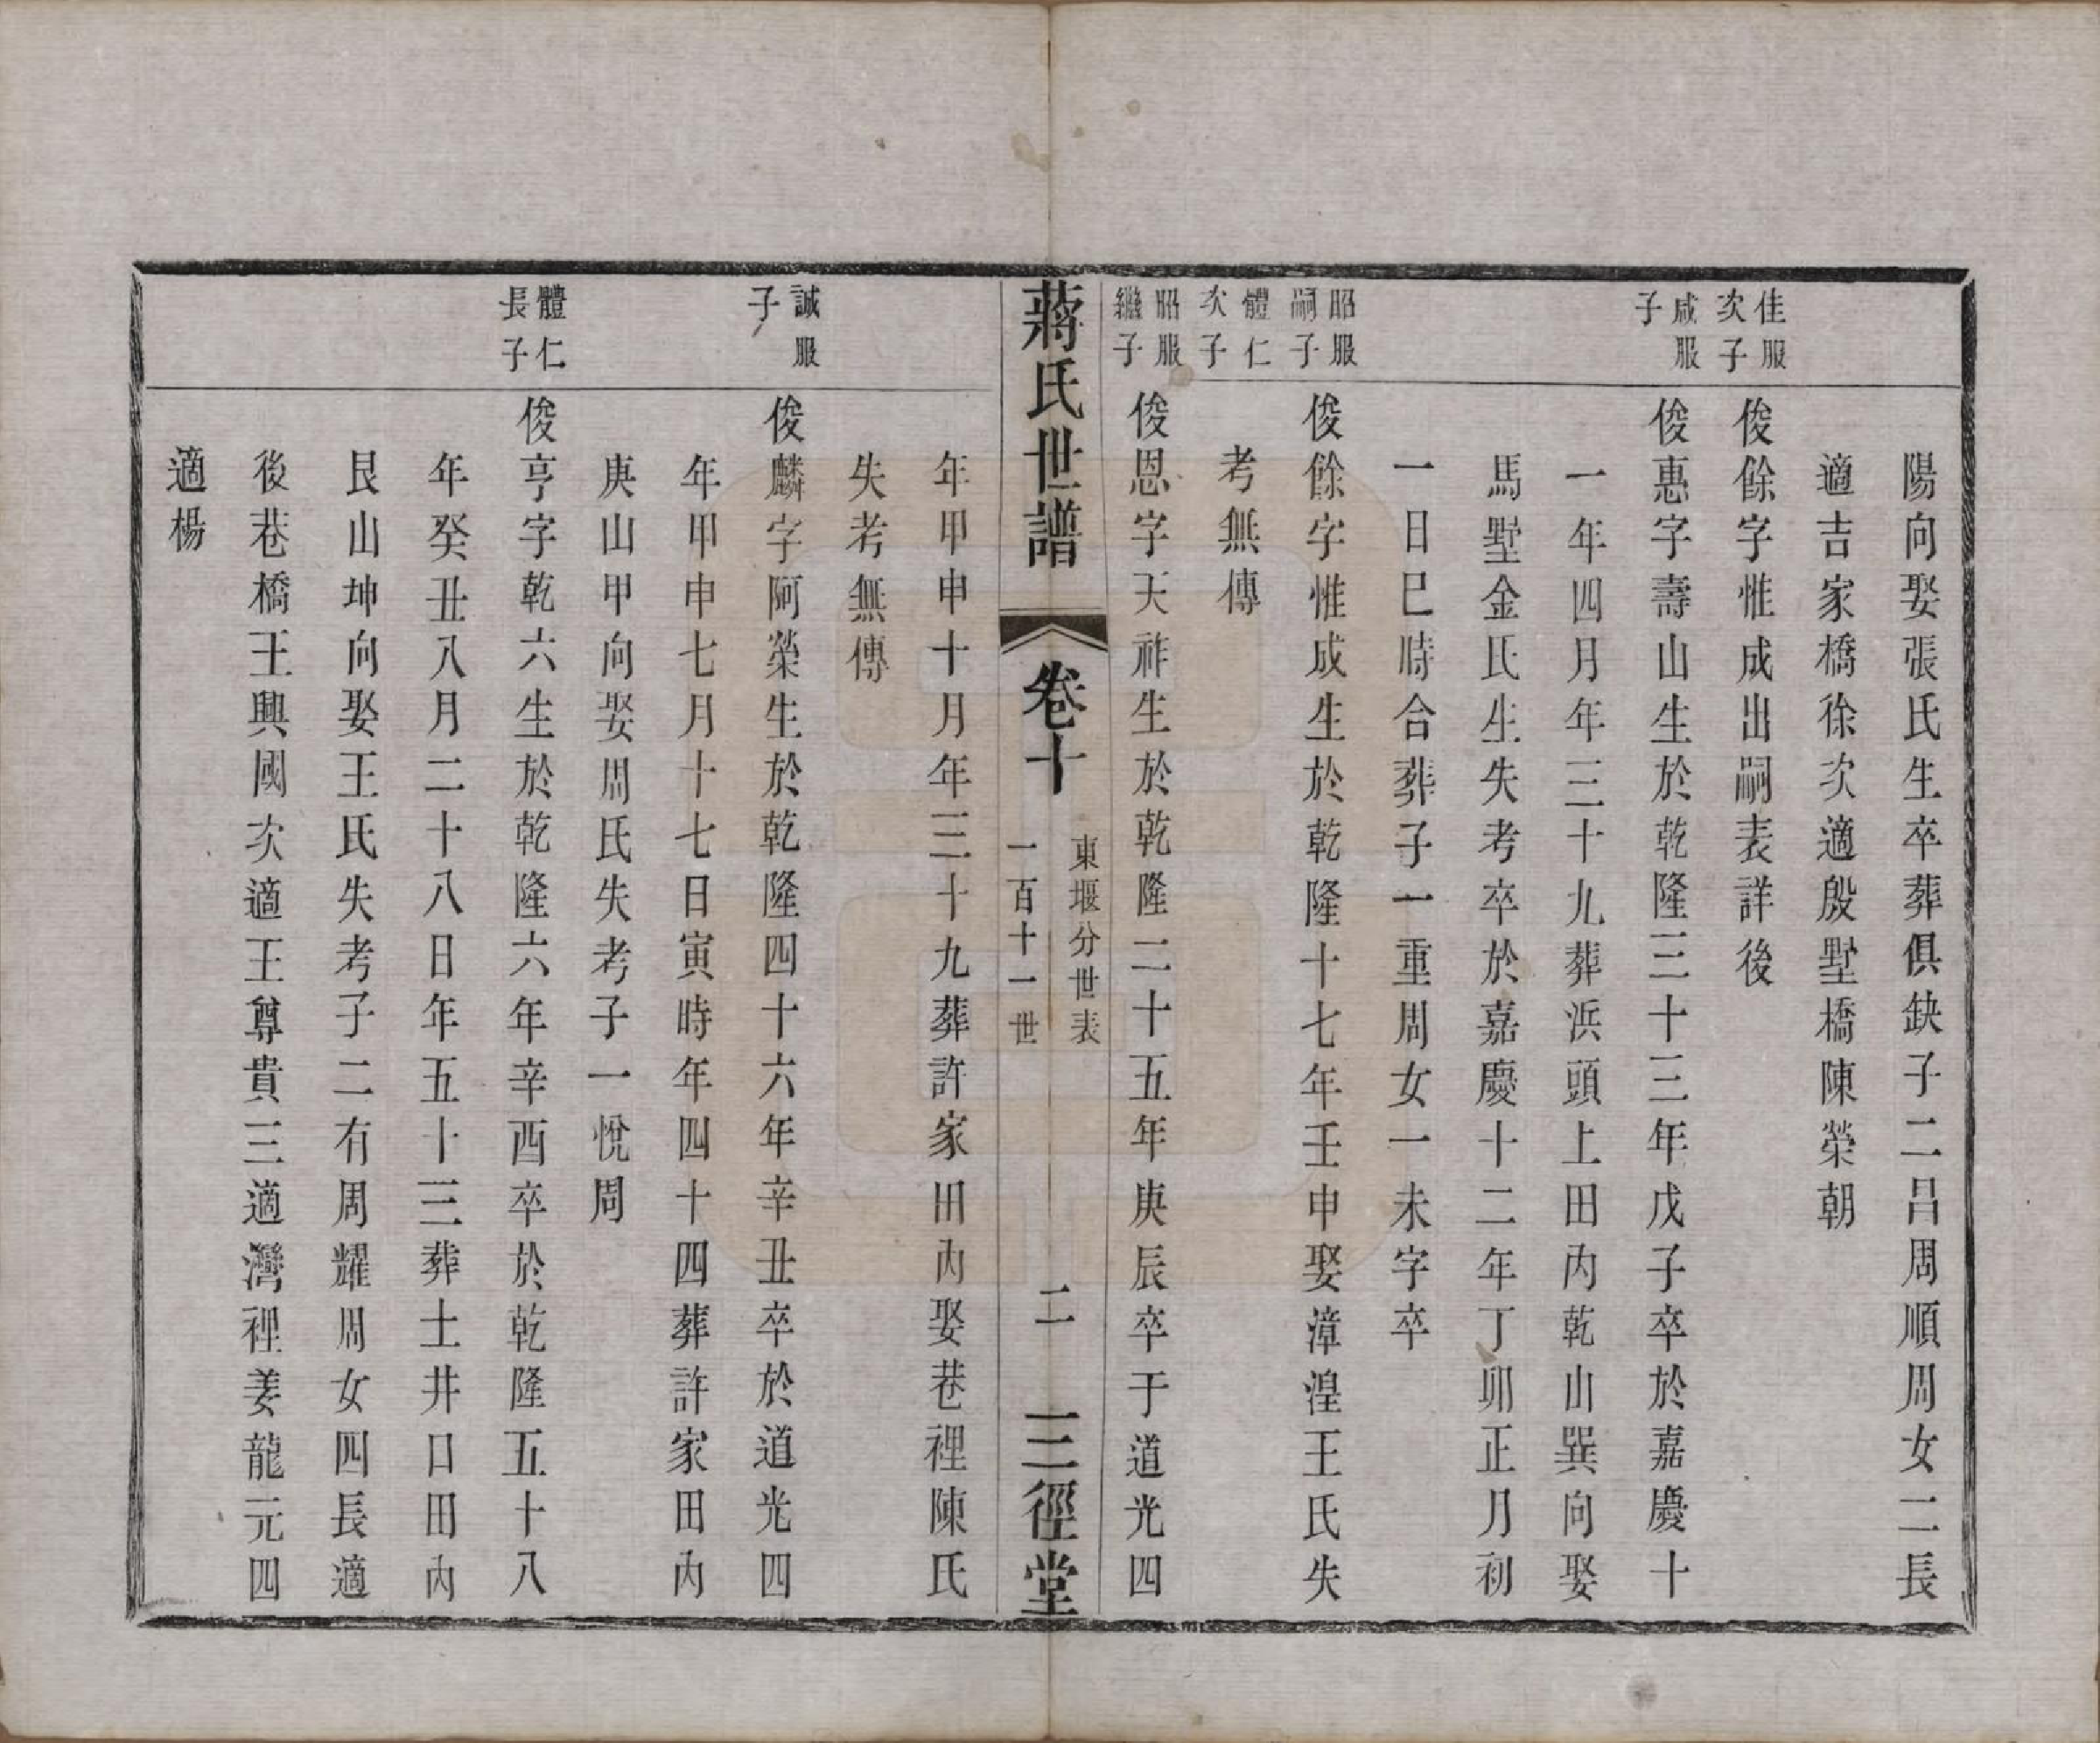 陽向娶張氏生卒葬俱缺子二呂周順周女二長
適吉家橋徐次適殷墅橋陳榮朝
佳服
次子
俊餘字惟成出嗣表詳後
咸服
子
俊惠字壽山生於乾隆三十三年戊子卒於嘉慶十
一年四月年三十九葬浜頭上田内乾山巽向娶
馬墅金氏生失考卒於嘉慶十二年丁卯正月初
一日巳時合葬子一重周女一未字卒
昭服
嗣子
俊餘字惟成生於乾隆十七年壬申娶漳湟王氏失
體仁
次子
考無傳
昭服
繼子
俊恩字天祚生於乾隆二十五年庚辰卒于道光四
蔣氏世譜
卷十
東堰分世表
一百十一世
二
三徑堂
年甲申十月年三十九葬許家田内娶巷裡陳氏
失考無傳
誠服
子
俊麟字阿榮生於乾隆四十六年辛丑卒於道光四
年甲申七月十七日寅時年四十四葬許家田内
庚山甲向娶周氏失考子一悅周
體仁
長子
俊亨字乾六生於乾隆六年辛酉卒於乾隆五十八
年癸丑八月二十八日年五十三葬土井口田内
艮山坤向娶王氏失考子二有周耀周女四長適
後巷橋王興國次適王尊貴三適灣裡姜龍元四
適楊